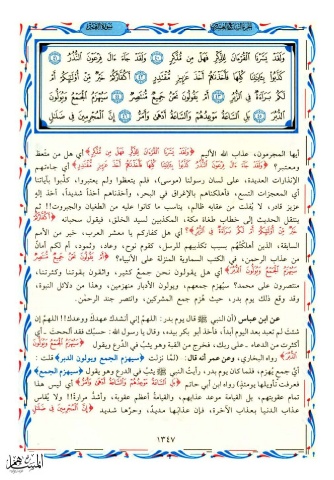 سورة القمر
وَلَقَدْ يَسَّرْنَا الْقُرْءَانَ لِلذِّكْرِ فَهَلْ مِن مُّدَّكِرٍ ٤٠ وَلَقَدْ جَاءَ ءَالَ فِرْعَوْنَ النُّذُرُ ٤١
كَذَّبُوا بِـَٔايَٰتِنَا كُلِّهَا فَأَخَذْنَٰهُمْ أَخْذَ عَزِيزٍ مُّقْتَدِرٍ ٤٢ أَكُفَّارُكُمْ خَيْرٌ مِّنْ أُولَٰئِكُمْ أَمْ
لَكُم بَرَاءَةٌ فِي الزُّبُرِ ٤٣ أَمْ يَقُولُونَ نَحْنُ جَمِيعٌ مُّنتَصِرٌ ٤٤ سَيُهْزَمُ الْجَمْعُ وَيُوَلُّونَ
الدُّبُرَ ٤٥ بَلِ السَّاعَةُ مَوْعِدُهُمْ وَالسَّاعَةُ أَدْهَىٰ وَأَمَرُّ ٤٦ إِنَّ الْمُجْرِمِينَ فِي ضَلَٰلٍ
أيها المجرمون، عذاب الله الأليم ﴿وَلَقَدْ يَسَّرْنَا الْقُرْءَانَ لِلذِّكْرِ فَهَلْ مِن مُّدَّكِرٍ﴾ أي هل من متعظ
ومعتبر؟ ﴿وَلَقَدْ جَاءَ ءَالَ فِرْعَوْنَ النُّذُرُ كَذَّبُوا بِـَٔايَٰتِنَا كُلِّهَا فَأَخَذْنَٰهُمْ أَخْذَ عَزِيزٍ مُّقْتَدِرٍ﴾ أي جاءتهم
الإنذارات العديدة، على لسان رسولنا (موسى)، فلم يتعظوا ولم يعتبروا، كذَّبوا بآياتنا
أي المعجزات التسع، فأهلكناهم بالإغراق في البحر، وأخذناهم أخذاً شديداً، أخذ إلهٍ
عزيز قادر، لا يُفلت من عقابه ظالم، يناسب ما كانوا عليه من الطغيان والجبروت!! ثم
ينتقل الحديث إلى خطاب طغاة مكة، المكذبين لسيد الخلق، فيقول سبحانه ﴿أَكُفَّارُكُمْ
خَيْرٌ مِّنْ أُولَٰئِكُمْ أَمْ لَكُم بَرَاءَةٌ فِي الزُّبُرِ﴾؟ أي هل كفاركم يا معشر العرب، خير من الأمم
السابقة، الذين أهلكتُهم بسبب تكذيبهم للرسل، كقوم نوح، وعاد، وثمود، أم لكم أمانٌ
من عذاب الرحمن، في الكتب السماوية المنزلة على الأنبياء؟ ﴿أَمْ يَقُولُونَ نَحْنُ جَمِيعٌ مُّنتَصِرٌ
سَيُهْزَمُ الْجَمْعُ وَيُوَلُّونَ الدُّبُرَ﴾ أي هل يقولون نحن جمعٌ كثير، واثقون بقوتنا وكثرتنا،
منتصرون على محمد؟ سيُهزم جمعهم، ويولون الأدبار منهزمين، وهذا من دلائل النبوة،
وقد وقع ذلك يوم بدر، حيث هُزم جمع المشركين، وانتصر جند الرحمن.
عن ابن عباس (أن النبي ﷺ قال يوم بدر: اللهمَّ إني أنشدك عهدك ووعدك!! اللهمَّ إن
شئتَ لم تعبد بعد اليوم أبداً، فأخذ أبو بكر بيده، وقال يا رسول الله: حسبُك فقد ألححتَ -أي
أكثرت من الدعاء- على ربك، فخرج من القبة وهو يثبُ في الدرع ويقول ﴿سَيُهْزَمُ الْجَمْعُ وَيُوَلُّونَ
الدُّبُرَ﴾) رواه البخاري، وعن عمر أنه قال: (لمَّا نزلت ﴿سيهزم الجمع ويولون الدبر﴾ قلت:
أيُّ جمع يُهزم، فلما كان يوم بدر، رأيتُ النبي ﷺ يثبُ في الدرع وهو يقول ﴿سيهزم الجمع﴾
فعرفت تأويلها يومئذٍ) رواه ابن أبي حاتم ﴿بَلِ السَّاعَةُ مَوْعِدُهُمْ وَالسَّاعَةُ أَدْهَىٰ وَأَمَرُّ﴾ أي ليس هذا
تمام عقوبتهم، بل القيامة موعد عذابهم، والقيامةُ أعظم عقوبة، وأشدُّ مرارةً!! ولا يُقاس
عذابُ الدنيا بعذاب الآخرة، فإن عذابها مديدٌ، وحرَّها شديد ﴿إِنَّ الْمُجْرِمِينَ فِي ضَلَٰلٍ
١٣٤٧